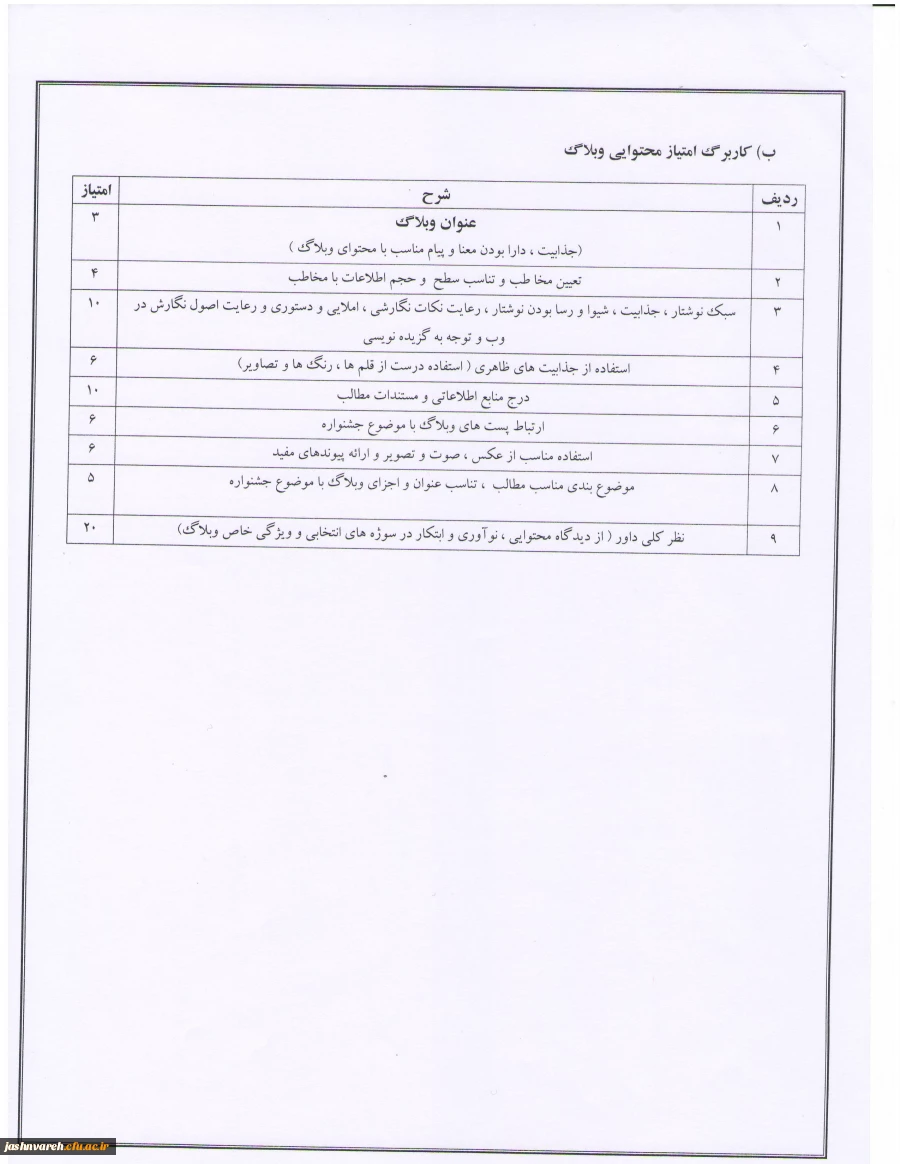 ب) کاربرگ امتیاز محتوایی وبلاگ
ردیف شرح امتیاز
۱ عنوان وبلاگ ۳
(جذابیت ، دارا بودن معنا و پیام مناسب با محتوای وبلاگ )
۲ تعیین مخاطب و تناسب سطح و حجم اطلاعات با مخاطب ۴
۳ سبک نوشتار ، جذابیت ، شیوا و رسا بودن نوشتار ، رعایت نکات نگارشی ، املایی و دستوری و رعایت اصول نگارش در ۱۰
وب و توجه به گزیده نویسی
۴ استفاده از جذابیت های ظاهری ( استفاده درست از قلم ها ، رنگ ها و تصاویر) ۶
۵ درج منابع اطلاعاتی و مستندات مطالب ۱۰
۶ ارتباط پست های وبلاگ با موضوع جشنواره ۶
۷ استفاده مناسب از عکس ، صوت و تصویر و ارائه پیوندهای مفید ۶
۸ موضوع بندی مناسب مطالب ، تناسب عنوان و اجزای وبلاگ با موضوع جشنواره ۵
۹ نظر کلی داور ( از دیدگاه محتوایی ، نوآوری و ابتکار در سوژه های انتخابی و ویژگی خاص وبلاگ) ۲۰
jashnvareh.cfu.ac.ir